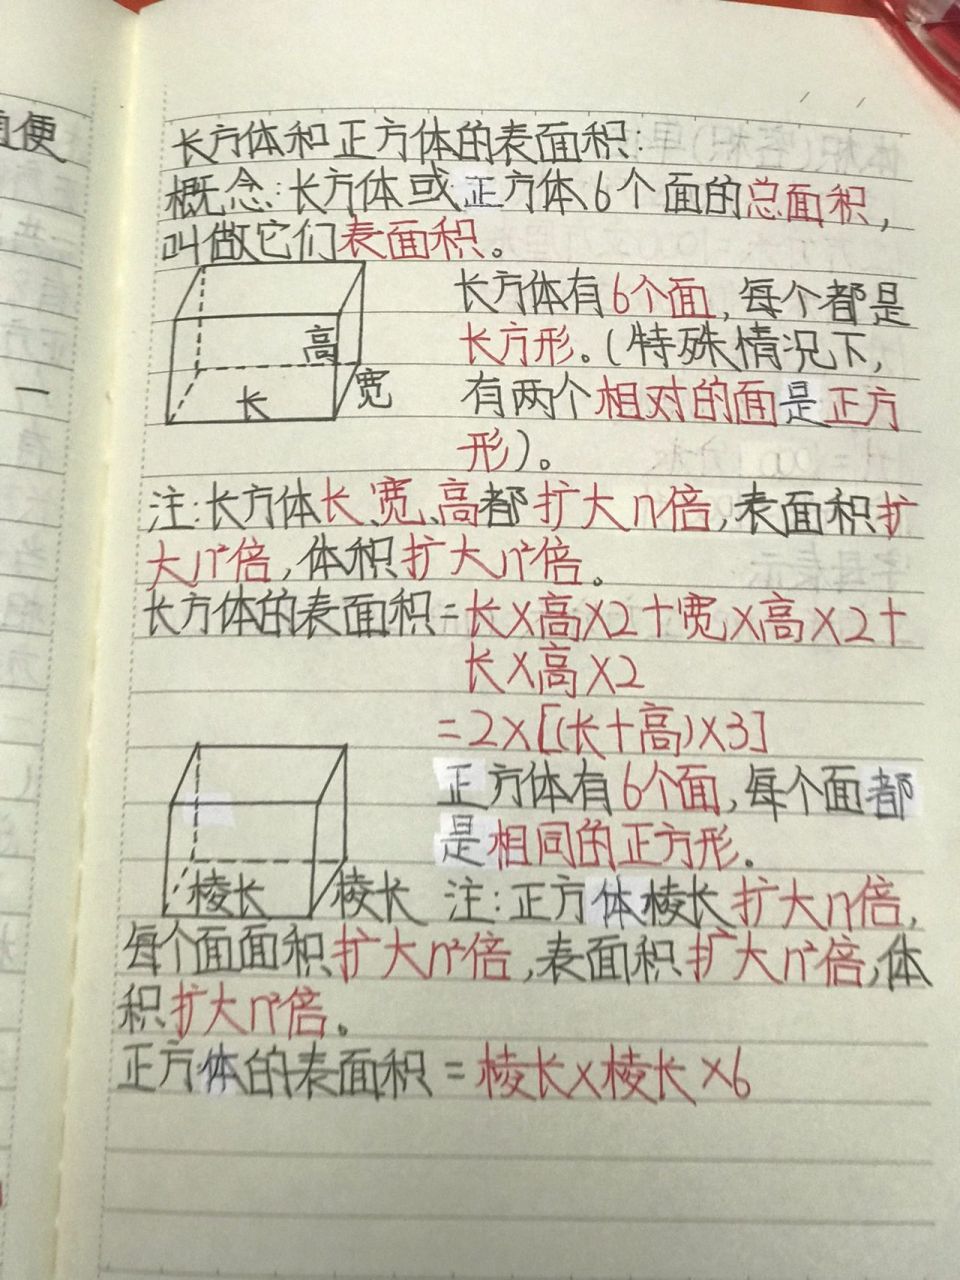 直便
一
长方体和正方体的表面积:
概念:长方体或正方体6个面的总面积,
叫做它们表面积。
高
长
宽
长方体有6个面,每个都是
长方形。(特殊情况下,
有两个相对的面是正方
形)。
注:长方体长、宽、高都扩大n倍,表面积扩
大n²倍,体积扩大n²倍。
长方体的表面积=长×高×2+宽×高×2+
长×高×2
=2×[(长+高)×3]
正方体有6个面,每个面都
是相同的正方形。
棱长
棱长
注:正方体棱长扩大n倍,
每个面面积扩大n²倍,表面积扩大n²倍,体
积扩大n²倍。
正方体的表面积=棱长×棱长×6